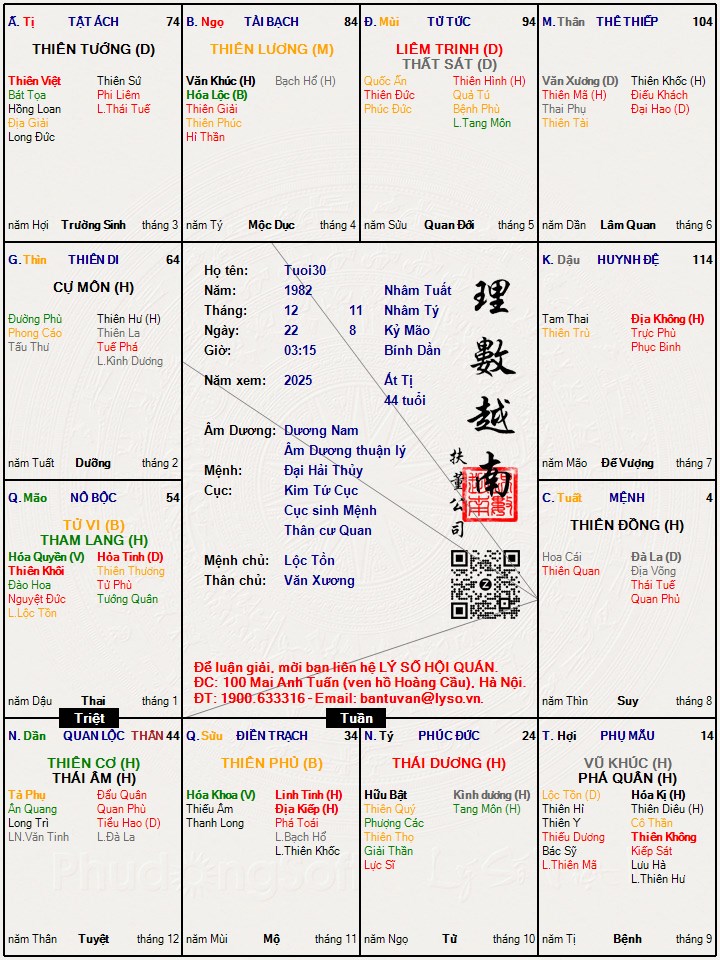 Ă. Tị TẬT ÁCH 74
THIÊN TƯỚNG (D)
Thiên Việt Thiên Sứ
Bát Tọa Phi Liêm
Hồng Loan L.Thái Tuế
Địa Giải
Long Đức
năm Hợi Trường Sinh tháng 3
B. Ngọ TÀI BẠCH 84
THIÊN LƯƠNG (M)
Văn Khúc (H) Bạch Hổ (H)
Hóa Lộc (B)
Thiên Giải
Thiên Phúc
Hỉ Thần
năm Tý Mộc Dục tháng 4
Đ. Mùi TỬ TỨC 94
LIÊM TRINH (D)
THẤT SÁT (D)
Quốc Ấn Thiên Hình (H)
Thiên Đức Quả Tú
Phúc Đức Bệnh Phù
L.Tang Môn
năm Sửu Quan Đới tháng 5
M. Thân THÊ THIẾP 104
Văn Xương (D) Thiên Khốc (H)
Thiên Mã (H) Điếu Khách
Thai Phụ Đại Hao (D)
Thiên Tài
năm Dần Lâm Quan tháng 6
G. Thìn THIÊN DI 64
CỰ MÔN (H)
Đường Phù Thiên Hư (H)
Phong Cáo Thiên La
Tấu Thư Tuế Phá
L.Kình Dương
năm Tuất Dưỡng tháng 2
Họ tên: Tuoi30
Năm: 1982 Nhâm Tuất
Tháng: 12 11 Nhâm Tý
Ngày: 22 8 Kỷ Mão
Giờ: 03:15 Bính Dần
Năm xem: 2025 Ất Tị
44 tuổi
Âm Dương: Dương Nam
Âm Dương thuận lý
Mệnh: Đại Hải Thủy
Cục: Kim Tứ Cục
Cục sinh Mệnh
Thân cư Quan
Mệnh chủ: Lộc Tồn
Thân chủ: Văn Xương
理數越南
扶董公司
Để luận giải, mời bạn liên hệ LÝ SỐ HỘI QUÁN.
ĐC: 100 Mai Anh Tuấn (ven hồ Hoàng Cầu), Hà Nội.
ĐT: 1900.633316 - Email: bantuvan@lyso.vn.
K. Dậu HUYNH ĐỆ 114
Tam Thai Địa Không (H)
Thiên Trù Trực Phù
Phục Binh
năm Mão Đế Vượng tháng 7
Q. Mão NÔ BỘC 54
TỬ VI (B)
THAM LANG (H)
Hóa Quyền (V) Hỏa Tinh (D)
Thiên Khôi Thiên Thương
Đào Hoa Tử Phù
Nguyệt Đức Tướng Quân
L.Lộc Tồn
năm Dậu Thai tháng 1
C. Tuất MỆNH 4
THIÊN ĐỒNG (H)
Hoa Cái Đà La (D)
Thiên Quan Địa Võng
Thái Tuế
Quan Phủ
năm Thìn Suy tháng 8
Triệt
Tuần
N. Dần QUAN LỘC THÂN 44
THIÊN CƠ (H)
THÁI ÂM (H)
Tả Phụ Đẩu Quân
Ân Quang Quan Phù
Long Trì Tiểu Hao (D)
LN.Văn Tinh L.Đà La
năm Thân Tuyệt tháng 12
Q. Sửu ĐIỀN TRẠCH 34
THIÊN PHỦ (B)
Hóa Khoa (V) Linh Tinh (H)
Thiếu Âm Địa Kiếp (H)
Thanh Long Phá Toái
L.Bạch Hổ
L.Thiên Khốc
năm Mùi Mộ tháng 11
N. Tý PHÚC ĐỨC 24
THÁI DƯƠNG (H)
Hữu Bật Kình dương (H)
Thiên Quý Tang Môn (H)
Phượng Các
Thiên Thọ
Giải Thần
Lực Sĩ
năm Ngọ Tử tháng 10
T. Hợi PHỤ MẪU 14
VŨ KHÚC (H)
PHÁ QUÂN (H)
Lộc Tồn (D) Hóa Kị (H)
Thiên Hỉ Thiên Diêu (H)
Thiên Y Cô Thần
Thiếu Dương Thiên Không
Bác Sỹ Kiếp Sát
L.Thiên Mã Lưu Hà
L.Thiên Hư
năm Tị Bệnh tháng 9